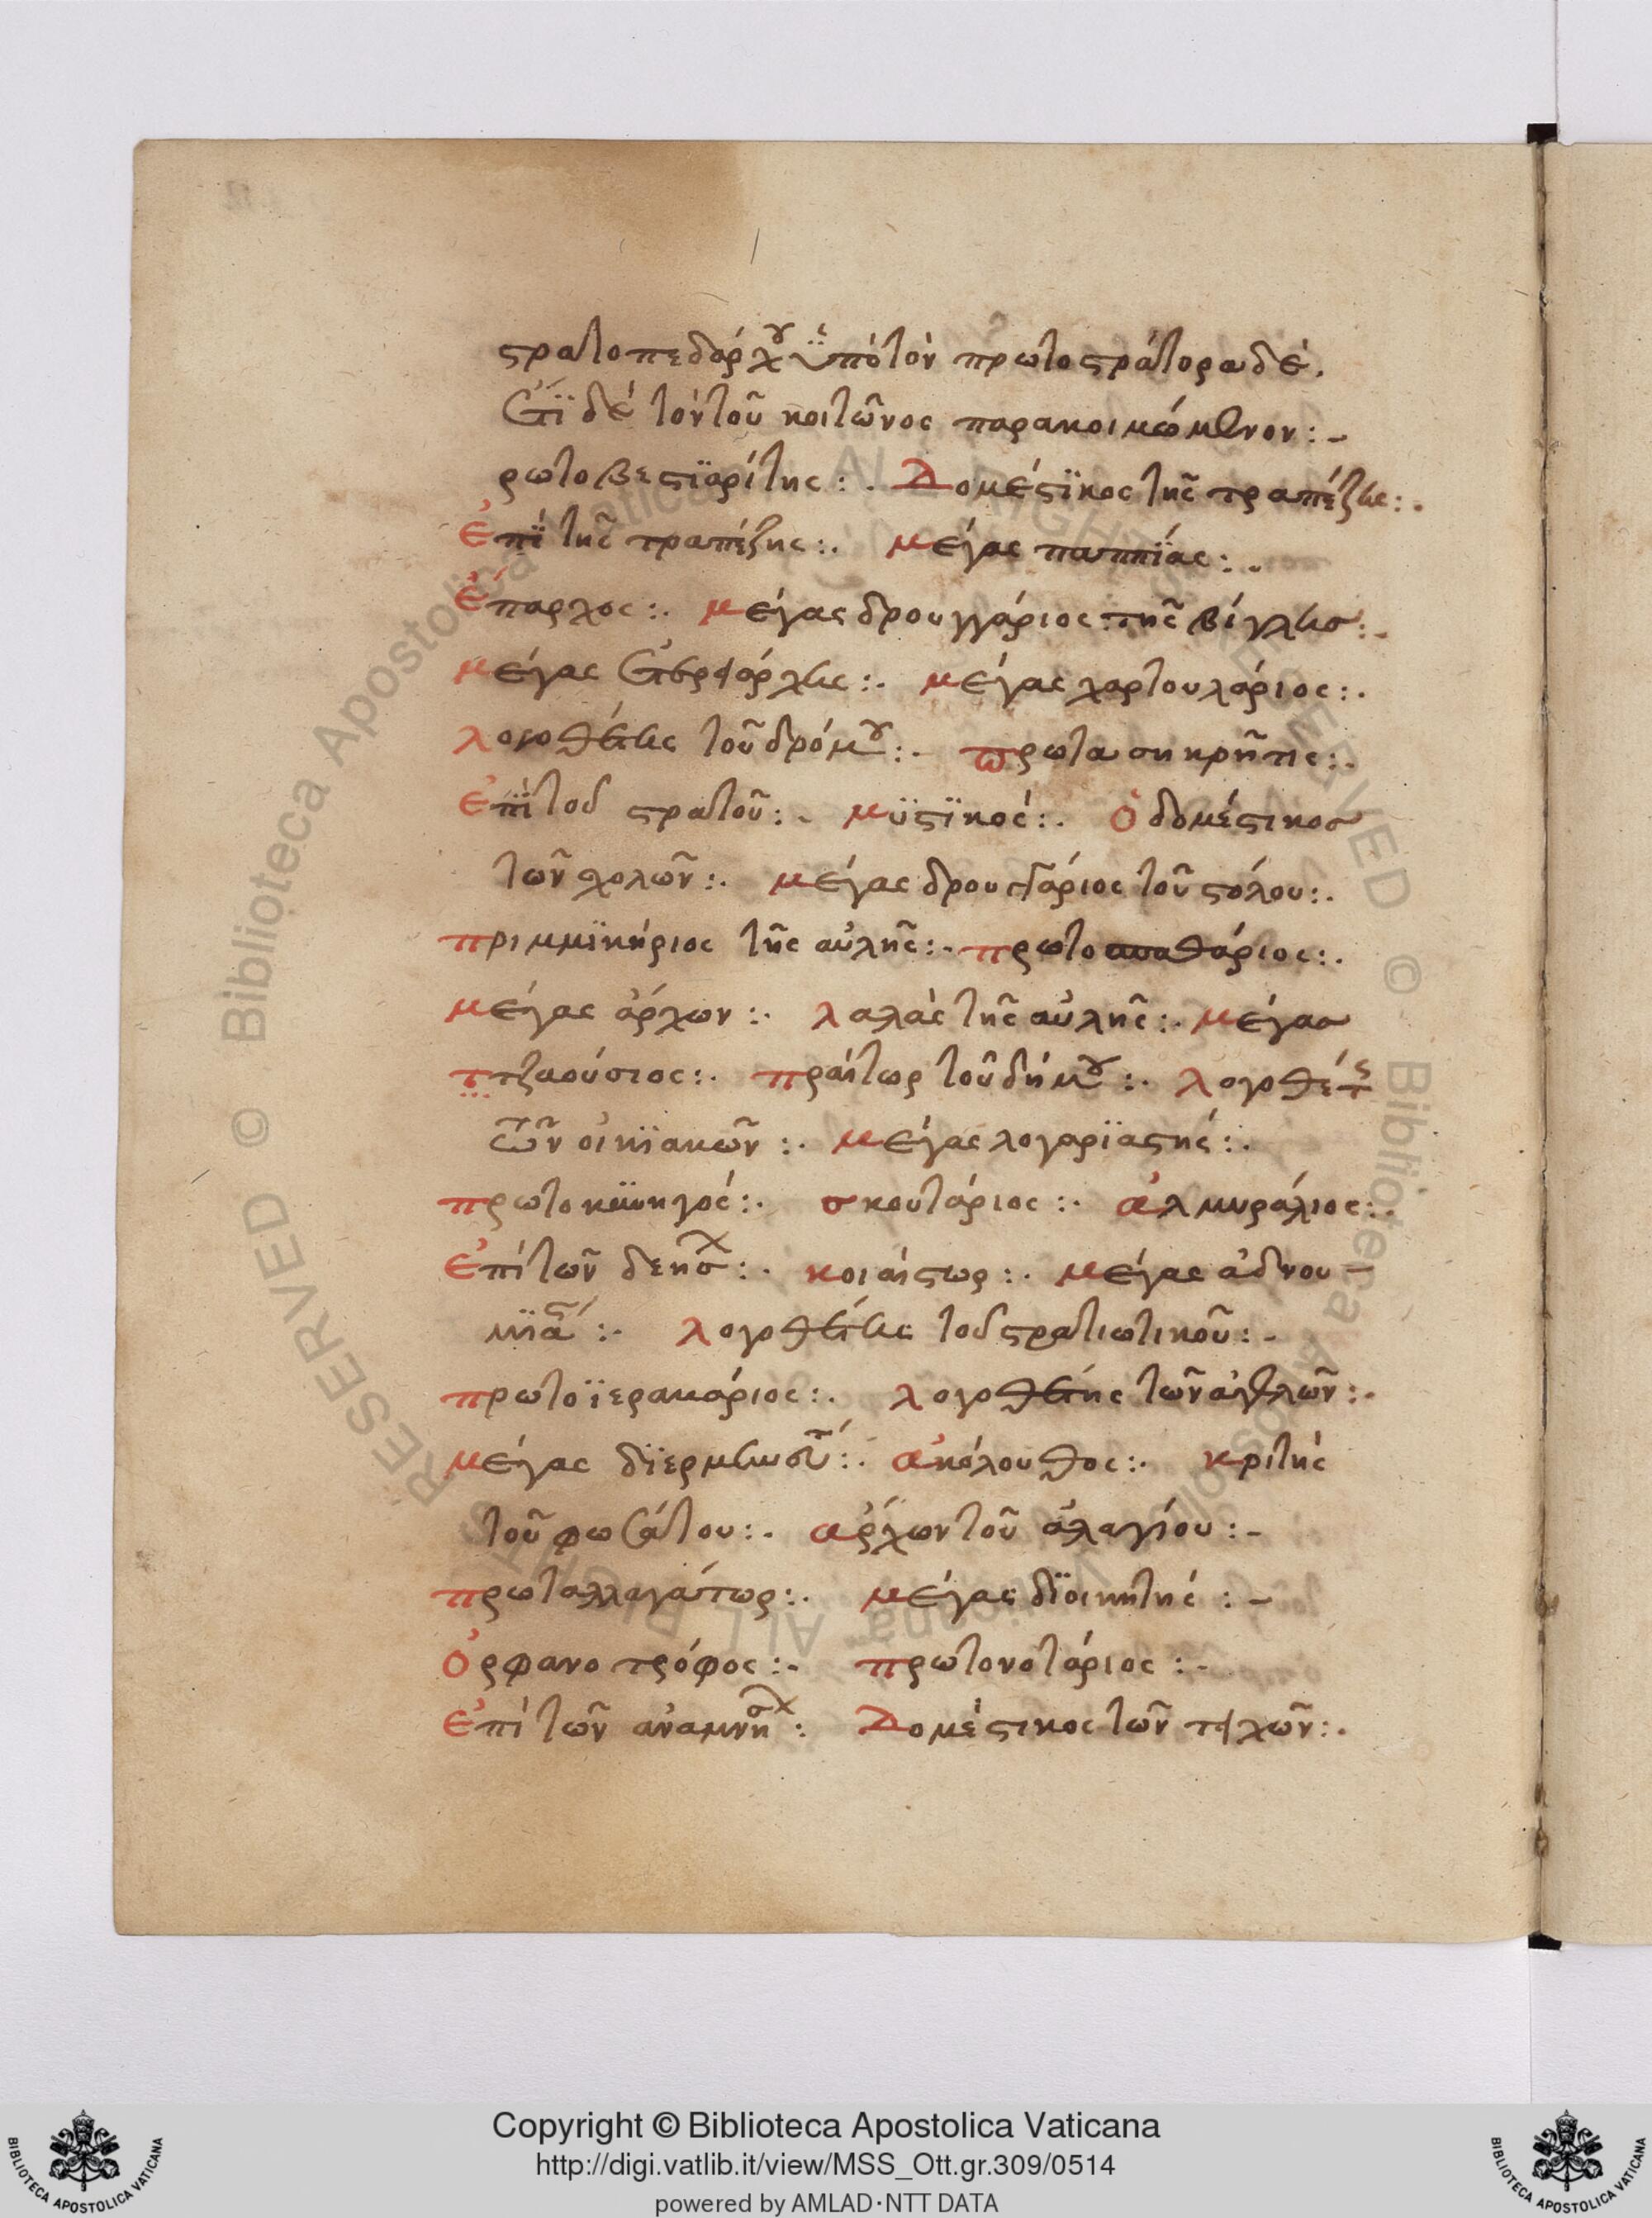 στρατοπεδάρχου ὑπὸ τὸν πρωτοστράτορα δέ.
εἰ δὲ τὸν τοῦ κοιτῶνος παρακοιμώμενον:-
ρωτοβεστϊαρίτης:. Δομέστϊκος τῆς τραπέζης:.
Ἐπὶ τῆς τραπέζης:. μέγας παππίας:.
Ἔπαρχος:. μέγας δρουγγάριος τῆς βίγλης:.
μέγας ἑταιρειάρχης:. μέγας χαρτουλάριος:.
λογοθέτης τοῦ δρόμου:. πρωτασηκρῆτις:.
ἐπὶ τοῦ στρατοῦ:. μϋστϊκός:. ὁ δομέστικος
τῶν σχολῶν:. μέγας δρουγγάριος τοῦ στόλου:.
πριμμϊκήριος τῆς αὐλῆς:. πρωτοσπαθάριος:.
μέγας ἄρχων:. λαλὰς τῆς αὐλῆς:. μέγας
τζαούσιος:. πραίτωρ τοῦ δήμου:. λογοθέτης
τῶν οἰκϊακῶν:. μέγας λογαρϊαστής:.
πρωτοκυνηγός:. σκουτάριος:. ἀλμυράλιος:.
Ἐπὶ τῶν δεήσεων:. κοιαίστωρ:. μέγας ἀδνου-
μϊαστής:. λογοθέτης τοῦ στρατιωτικοῦ:.
πρωτοϊερακάριος:. λογοθέτης τῶν ἀγελῶν:.
μέγας δϊερμηνευτής:. ἀκόλουθος:. κριτὴς
τοῦ φωσάτου:. ἄρχων τοῦ ἀλαγίου:-
πρωταλλαγάτωρ:. μέγας δϊοικητής:-
Ὀρφανοτρόφος:. πρωτονοτάριος:.
Ἐπὶ τῶν ἀναμνήσεων: Δομέστικος τῶν τειχῶν:.
Copyright © Biblioteca Apostolica Vaticana
http://digi.vatlib.it/view/MSS_Ott.gr.309/0514
powered by AMLAD·NTT DATA